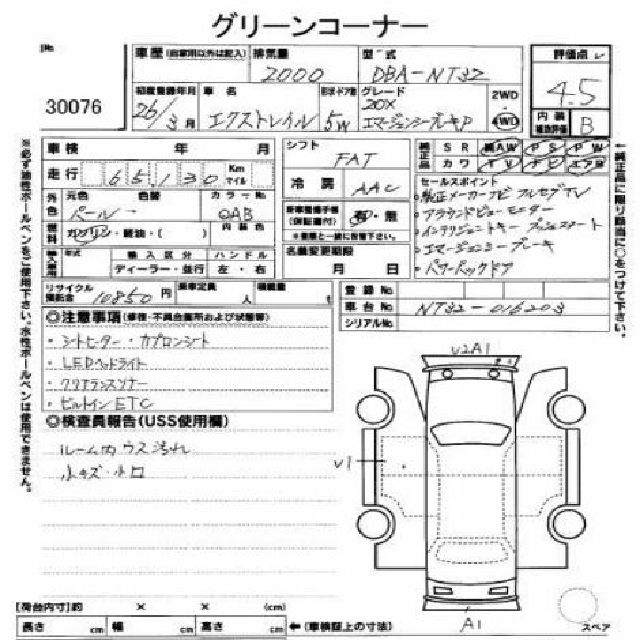 グリーンコーナー
No
30076
車歴 (自家用以外は記入) 排気量 2000 型式 DBA-NT32
評価点 4.5
内装補助評価 B
初度登録年月 26/3月 車名 エクストレイル 形状ドア数 5W グレード 20X エマージェンシーブレーキP 2WD・4WD
車検 年 月
走行 65,130 Km マイル
シフト FAT
冷房 AAC
純正品 SR AW PS PW
カワ TV ナビ エアB
外色 元色 パール 色替 カラーNo. QAB
燃料 ガソリン・軽油・( ) 内装色
新車整備手帳(保証書付) 有・無
※無題と一緒に提出して下さい。
名義変更期限 月 日
セールスポイント
・純正メーカーナビ フルセグTV
・アラウンドビューモニター
・インテリジェントキー プッシュスタート
・エマージェンシーブレーキ
・パワーバックドア
輸入車用 年式 輸入区分 ハンドル
ディーラー・並行 左・右
リサイクル預託金 10850円 乗車定員 人 積載量
登録No.
車台No. NT32-016203
シリアルNo.
◎注意事項 (修検・不具合箇所および状態等)
・シートヒーター・カプロンシート
・LEDヘッドライト
・クリアランスソナー
・ビルトインETC
◎検査員報告(USS使用欄)
ルーム内ウス汚れ
小キズ 小凹
※必ず油性ボールペンをご使用下さい。水性ボールペンは使用できません。
純正品に限り該当に○をつけて下さい。
U2A1
U1
A1
スペア
【荷台内寸】約 × × (cm)
長さ cm 幅 cm 高さ cm
←(車検証上の寸法)